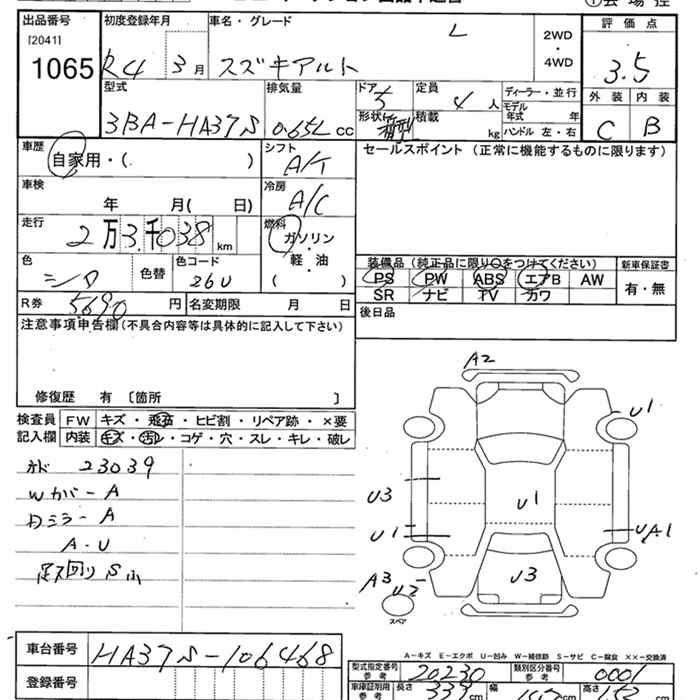 出品番号 初度登録年月 車名・グレード 評価点
[2041]
1065 R4 3月 スズキアルト L 2WD・4WD 3.5
型式 排気量 ドア 定員 ディーラー・並行 外装 内装
3BA-HA37S 0.65L cc 5 4人 モデル年式 年 C B
形状 箱型 積載 kg ハンドル 左・右
車歴 シフト セールスポイント (正常に機能するものに限ります)
自家用・( ) A/T
車検 冷房
年 月( 日) A/C
走行 燃料
2万3千038km ガソリン・軽・油
色 色替 色コード ( ) 装備品 (純正品に限り○をつけてください) 新車保証書
シロ 26U PS PW ABS エアB AW 有・無
SR ナビ TV カワ
R券 5690円 名変期限 月 日 後日品
注意事項申告欄(不具合内容等は具体的に記入して下さい)
修復歴 有 〔箇所 〕
検査員 FW キズ・飛石・ヒビ割・リペア跡・×要
記入欄 内装 キズ・汚レ・コゲ・穴・スレ・キレ・破レ
23039
Wカバー A
Dミラー A
A-U
足下回りS小
A2
U1
U3
U1
U1
UA1
A3
U2
U3
スペア
A-キズ E-エクボ U-凹み W-補修跡 S-サビ C-腐食 ××-交換済
車台番号 HA37S-106468
登録番号
型式指定番号 参考 20230 類別区分番号 参考 0001
車庫証明用 参考 長さ 339cm 幅 cm 高さ 152cm